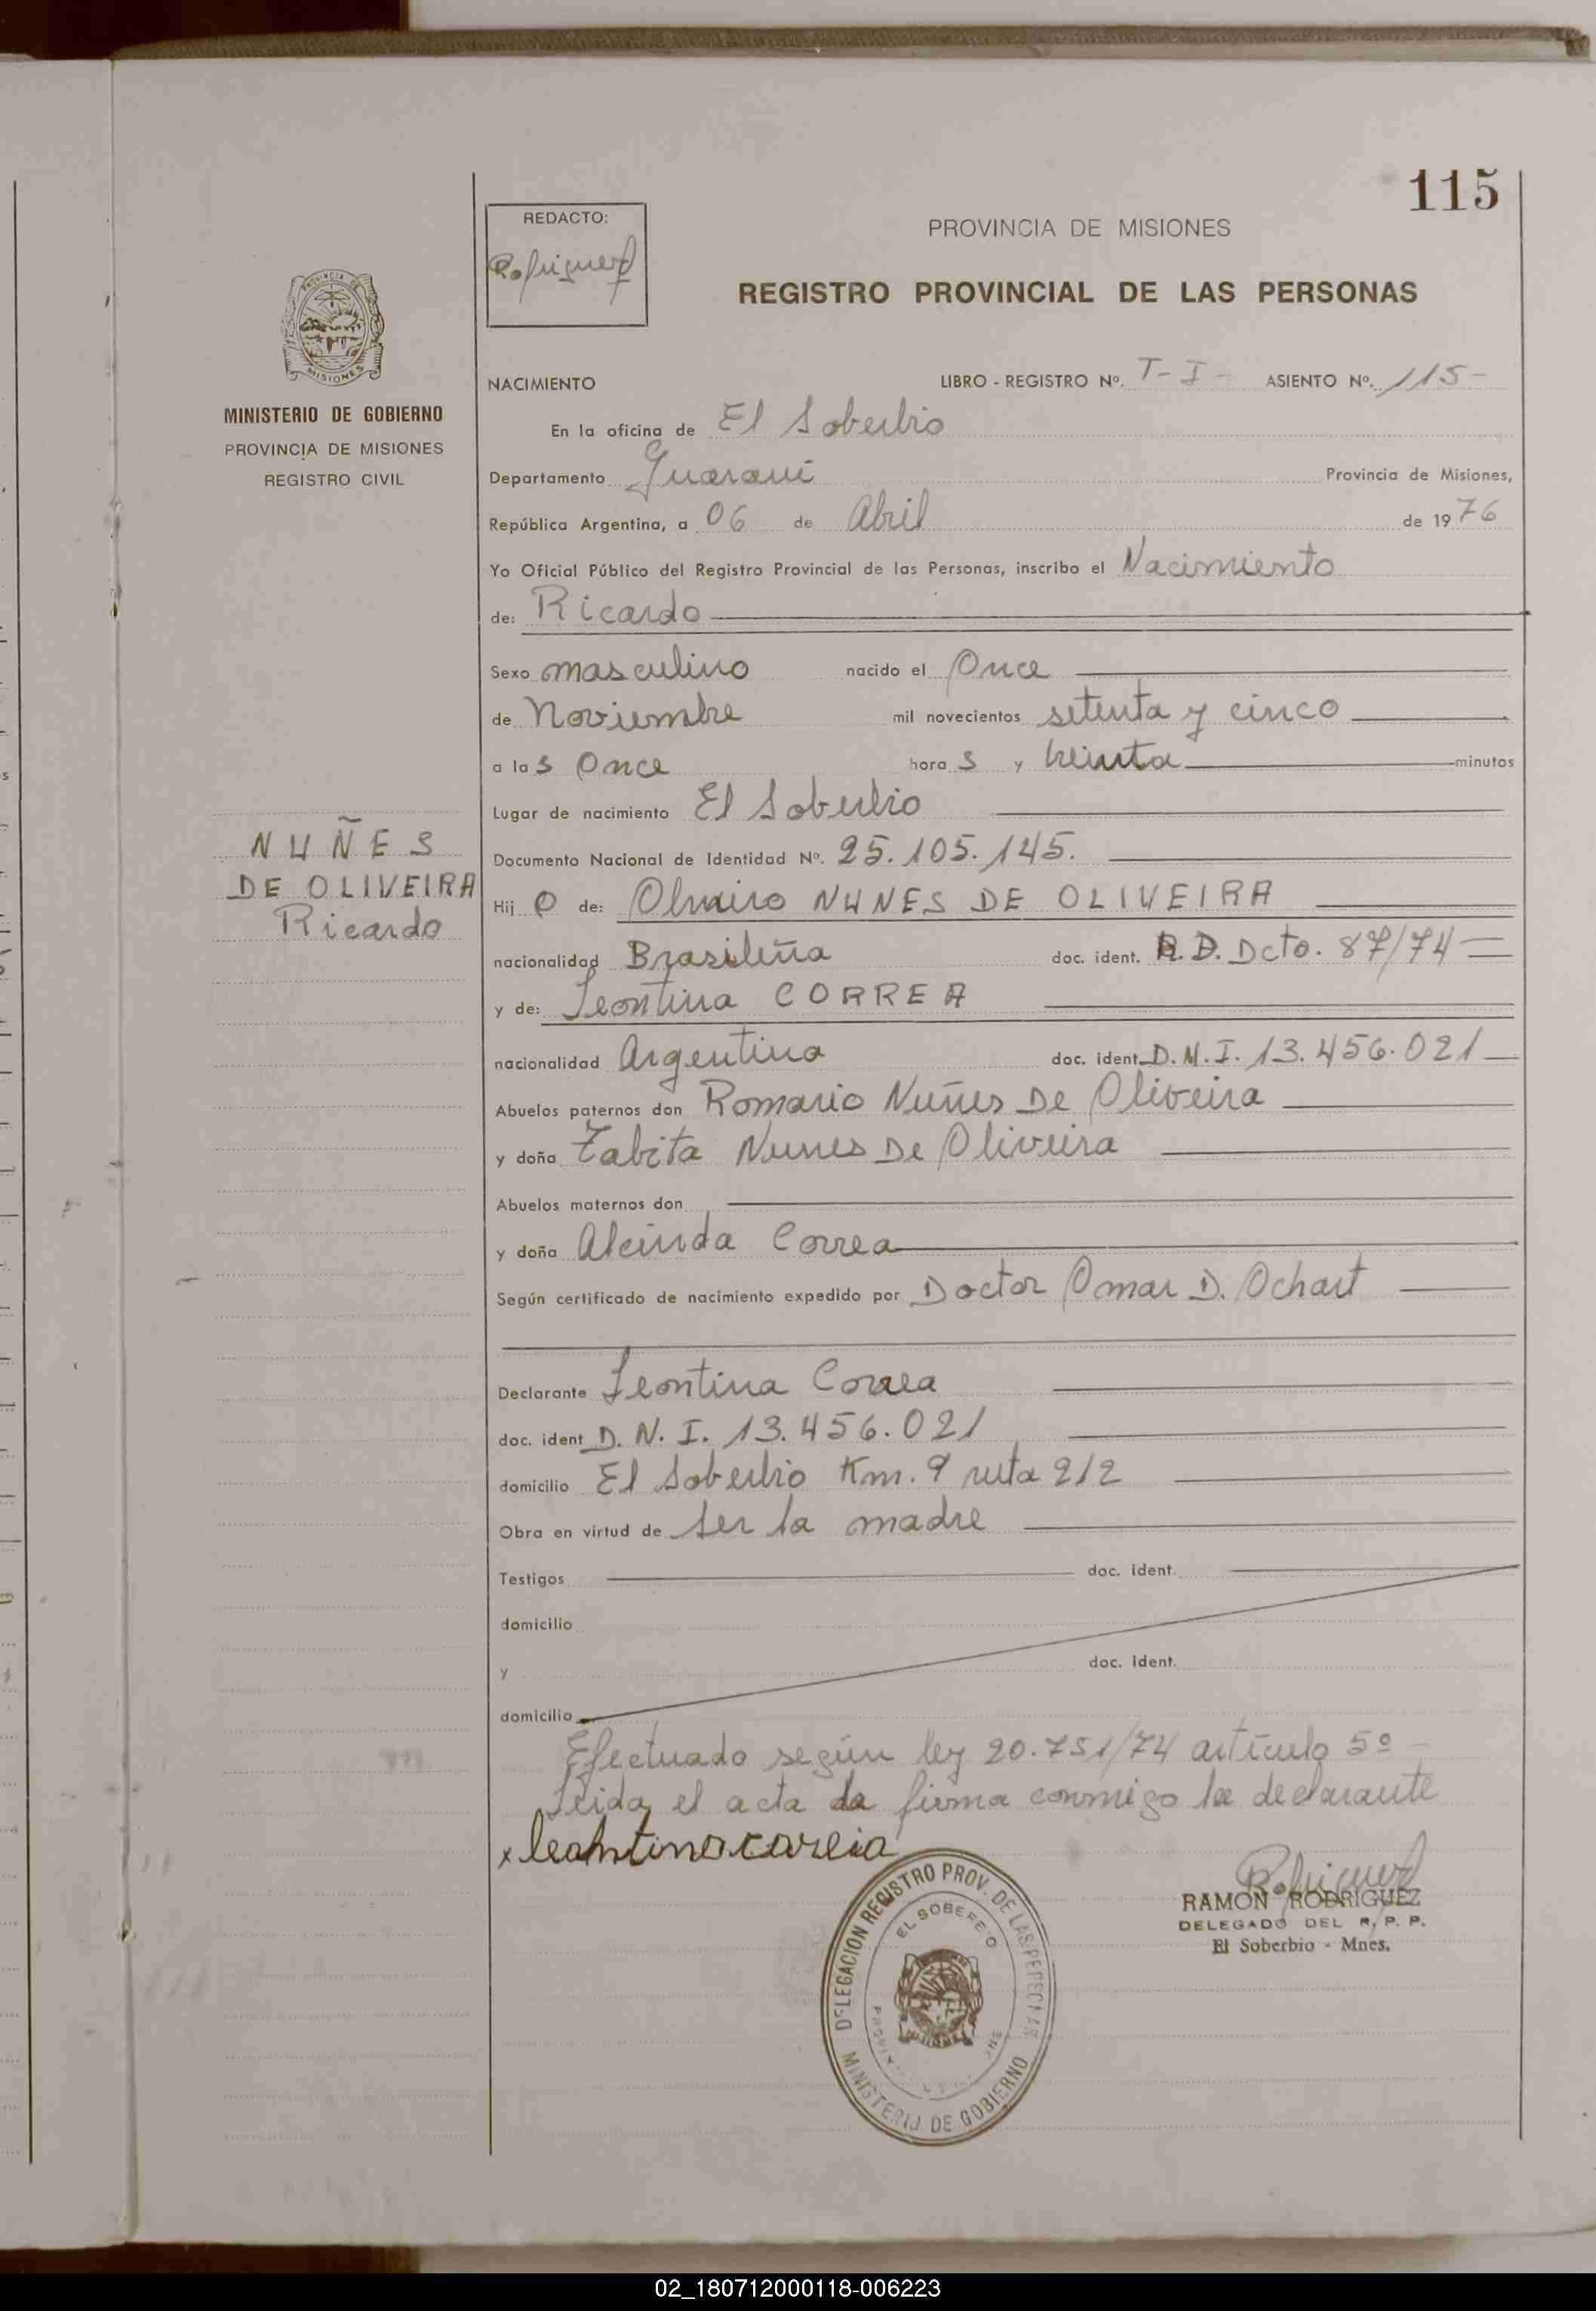 115
REDACTO:
Rodriguez
PROVINCIA DE MISIONES
REGISTRO PROVINCIAL DE LAS PERSONAS
PROVINCIA DE
MISIONES
MINISTERIO DE GOBIERNO
PROVINCIA DE MISIONES
REGISTRO CIVIL
NUÑES
DE OLIVEIRA
Ricardo
NACIMIENTO LIBRO - REGISTRO Nº. T-I- ASIENTO Nº. 115-
En la oficina de El Soberbio
Departamento Guaraní Provincia de Misiones,
República Argentina, a 06 de Abril de 1976
Yo Oficial Público del Registro Provincial de las Personas, inscribo el Nacimiento
de: Ricardo
Sexo masculino nacido el Once
de Noviembre mil novecientos setenta y cinco
a las Once horas y treinta minutos
Lugar de nacimiento El Soberbio
Documento Nacional de Identidad Nº. 25.105.145.
Hijo de: Olmiro NUNES DE OLIVEIRA
nacionalidad Brasileña doc. ident. R.D. Dcto. 87/74
y de: Leontina CORREA
nacionalidad Argentina doc. ident. D.N.I. 13.456.021
Abuelos paternos don Romario Nuñes De Oliveira
y doña Zabita Nunes De Oliveira
Abuelos maternos don
y doña Alcinda Correa
Según certificado de nacimiento expedido por Doctor Omar D. Ochart
Declarante Leontina Correa
doc. ident D.N.I. 13.456.021
domicilio El Soberbio Km. 9 ruta 212
Obra en virtud de ser la madre
Testigos doc. ident.
domicilio
y doc. ident.
domicilio
Efectuado según ley 20.751/74 artículo 5º
Leida el acta la firma conmigo la declarante
x leontina correia
Rodriguez
RAMON RODRIGUEZ
DELEGADO DEL R.P.P.
El Soberbio - Mnes.
DELEGACION REGISTRO PROV. DE LAS PERSONAS
EL SOBERBIO
MINISTERIO DE GOBIERNO
02_180712000118-006223